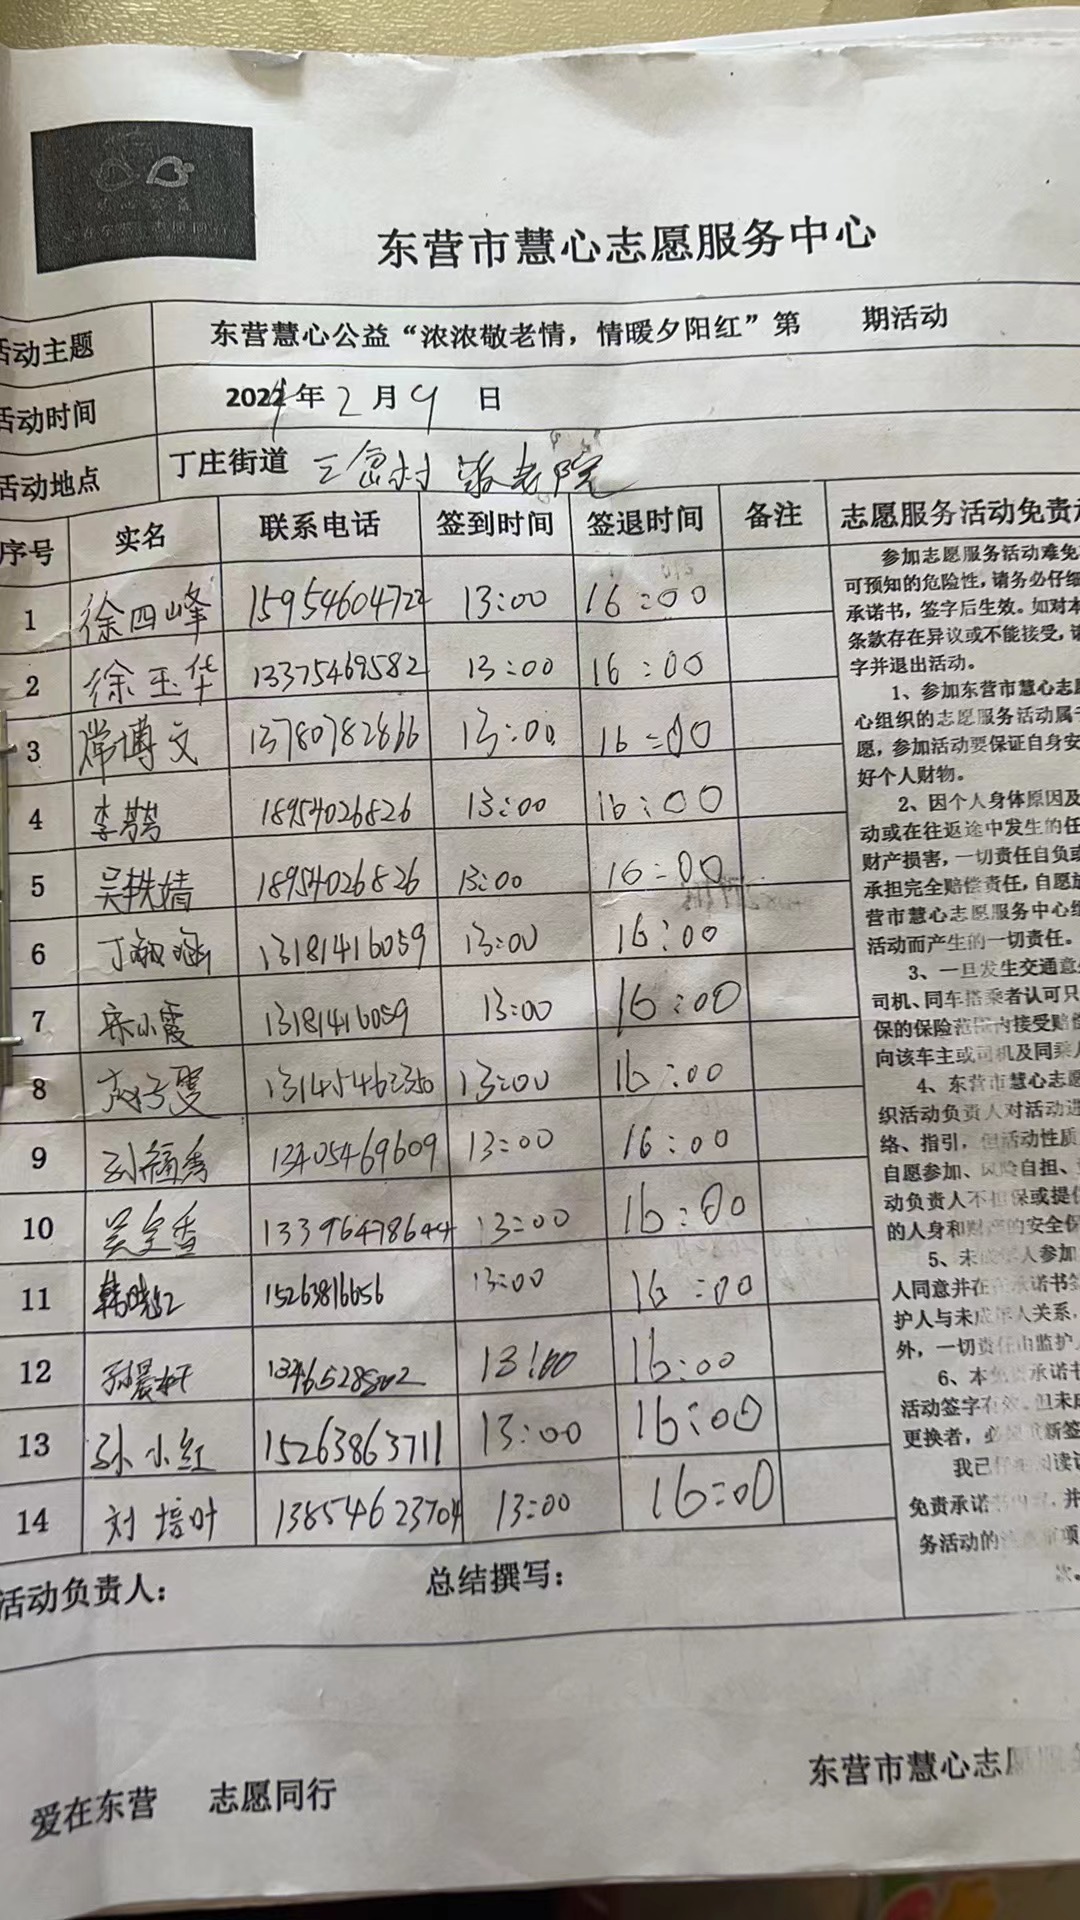 东营市慧心志愿服务中心
活动主题 东营慧心公益“浓浓敬老情，情暖夕阳红”第 期活动
活动时间 2024年2月9日
活动地点 丁庄街道 三岔村 敬老院
序号 实名 联系电话 签到时间 签退时间 备注
1 徐四峰 15954604722 13:00 16:00
2 徐玉华 13375469582 13:00 16:00
3 常博文 13780782866 13:00 16:00
4 18954026826 13:00 16:00
5 18954026826 13:00 16:00
6 13181416059 13:00 16:00
7 宋小霞 13181416059 13:00 16:00
8 13:00 16:00
9 刘福秀 13405469609 13:00 16:00
10 13396478644 13:00 16:00
11 韩晓红 15263816656 13:00 16:00
12 13:00 16:00
13 孙小红 15263863711 13:00 16:00
14 刘培叶 13854623704 13:00 16:00
活动负责人： 总结撰写：
志愿服务活动免责
参加志愿服务活动难免
可预知的危险性，请务必仔细
承诺书，签字后生效。如对本
条款存在异议或不能接受，请
字并退出活动。
1、参加东营市慧心志愿
心组织的志愿服务活动属于
愿，参加活动要保证自身安
好个人财物。
2、因个人身体原因及
动或在往返途中发生的任
财产损害，一切责任自负或
承担完全赔偿责任，自愿放
营市慧心志愿服务中心组
活动而产生的一切责任。
3、一旦发生交通意外
司机、同车搭乘者认可只
保的保险范围内接受赔偿
向该车主或司机及同乘人
4、东营市慧心志愿
织活动负责人对活动进
络、指引，但活动性质
自愿参加、风险自担、
动负责人不担保或提供
的人身和财产的安全保
5、未成年人参加
人同意并在在承诺书签
护人与未成年人关系，
外，一切责任由监护
6、本免责承诺书
活动签字有效。但未成
更换者，必须重新签
我已仔细阅读
免责承诺书内容，并
务活动的
爱在东营 志愿同行
东营市慧心志愿服务